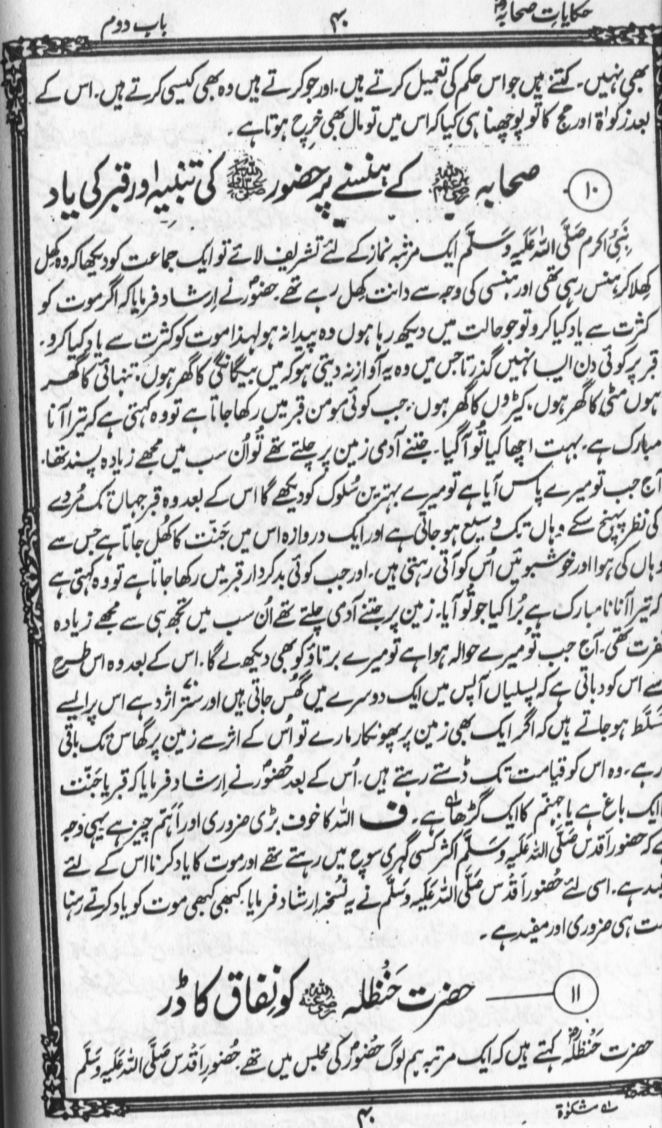 حکایات صحابہؓ
۴۰
باب دوم
بھی نہیں۔ کتنے ہیں جو اس حکم کی تعمیل کرتے ہیں۔ اور جو کرتے ہیں وہ بھی کیسی کرتے ہیں۔ اس کے
بعد زکوٰۃ اور حج کا تو پوچھنا ہی کیا کہ اس میں تو مال بھی خرچ ہوتا ہے۔
۱۰ صحابہ رضی اللہ عنہم کے ہنسنے پر حضور ﷺ کی تنبیہ اور قبر کی یاد
نبیٔ اکرم صَلَّی اللہُ عَلَیْہِ وَسَلَّم ایک مرتبہ نماز کے لئے تشریف لائے تو ایک جماعت کو دیکھا کہ وہ کھل
کھلا کر ہنس رہی تھی اور ہنسی کی وجہ سے دانت کھل رہے تھے۔ حضورؐ نے ارشاد فرمایا کہ اگر موت کو
کثرت سے یاد کیا کرو تو جو حالت میں دیکھ رہا ہوں وہ پیدا نہ ہو لہذا موت کو کثرت سے یاد کیا کرو۔
قبر پر کوئی دن ایسا نہیں گذرتا جس میں وہ یہ آواز نہ دیتی ہو کہ میں بیگانگی کا گھر ہوں، تنہائی کا گھر
ہوں مٹی کا گھر ہوں، کیڑوں کا گھر ہوں۔ جب کوئی مومن قبر میں رکھا جاتا ہے تو وہ کہتی ہے کہ تیرا آنا
مبارک ہے، بہت اچھا کیا تُو آگیا۔ جتنے آدمی زمین پر چلتے تھے تُو اُن سب میں مجھے زیادہ پسند تھا۔
آج جب تو میرے پاس آیا ہے تو میرے بہترین سُلوک کو دیکھے گا اس کے بعد وہ قبر جہاں تک مُردے
کی نظر پہنچ سکے وہاں تک وسیع ہو جاتی ہے اور ایک دروازہ اس میں جنّت کا کھُل جاتا ہے جس سے
وہاں کی ہوا اور خوشبوئیں اُس کو آتی رہتی ہیں۔ اور جب کوئی بدکردار قبر میں رکھا جاتا ہے تو وہ کہتی ہے
کہ تیرا آنا نامبارک ہے بُرا کیا جو تُو آیا۔ زمین پر جتنے آدمی چلتے تھے ان سب میں تجھ ہی سے مجھے زیادہ
نفرت تھی۔ آج جب تُو میرے حوالہ ہوا ہے تو میرے برتاؤ کو بھی دیکھ لے گا۔ اس کے بعد وہ اس طرح
سے اس کو دباتی ہے کہ پسلیاں آپس میں ایک دوسرے میں گھس جاتی ہیں اور ستّر اژدہے اس پر ایسے
مُسلّط ہو جاتے ہیں کہ اگر ایک بھی زمین پر پھونکار مارے تو اُس کے اثر سے زمین پر گھاس تک باقی
نہ رہے، وہ اس کو قیامت تک ڈستے رہتے ہیں۔ اُس کے بعد حضورؐ نے ارشاد فرمایا کہ قبر یا جنّت
کا ایک باغ ہے یا جہنم کا ایک گڑھا ہے۔ ف اللہ کا خوف بڑی ضروری اور اہم چیز ہے یہی وجہ
ہے کہ حضور اقدس صَلَّی اللہُ عَلَیْہِ وَسَلَّم اکثر کسی گہری سوچ میں رہتے تھے اور موت کا یاد کرنا اس کے لئے
مفید ہے۔ اسی لئے حضور اَقدُس صَلَّی اللہُ عَلَیْہِ وَسَلَّم نے یہ نُسخہ ارشاد فرمایا۔ کبھی کبھی موت کو یاد کرتے رہنا
بہت ہی ضروری اور مفید ہے۔
۱۱ حضرت حَنظلہ رضی اللہ عنہ کو نِفاق کا ڈر
حضرت حَنظلہؓ کہتے ہیں کہ ایک مرتبہ ہم لوگ حضورؐ کی مجلس میں تھے۔ حضورِ اَقدُس صَلَّی اللہُ عَلَیْہِ وَسَلَّم
لہ مشکوٰۃ
۴۰